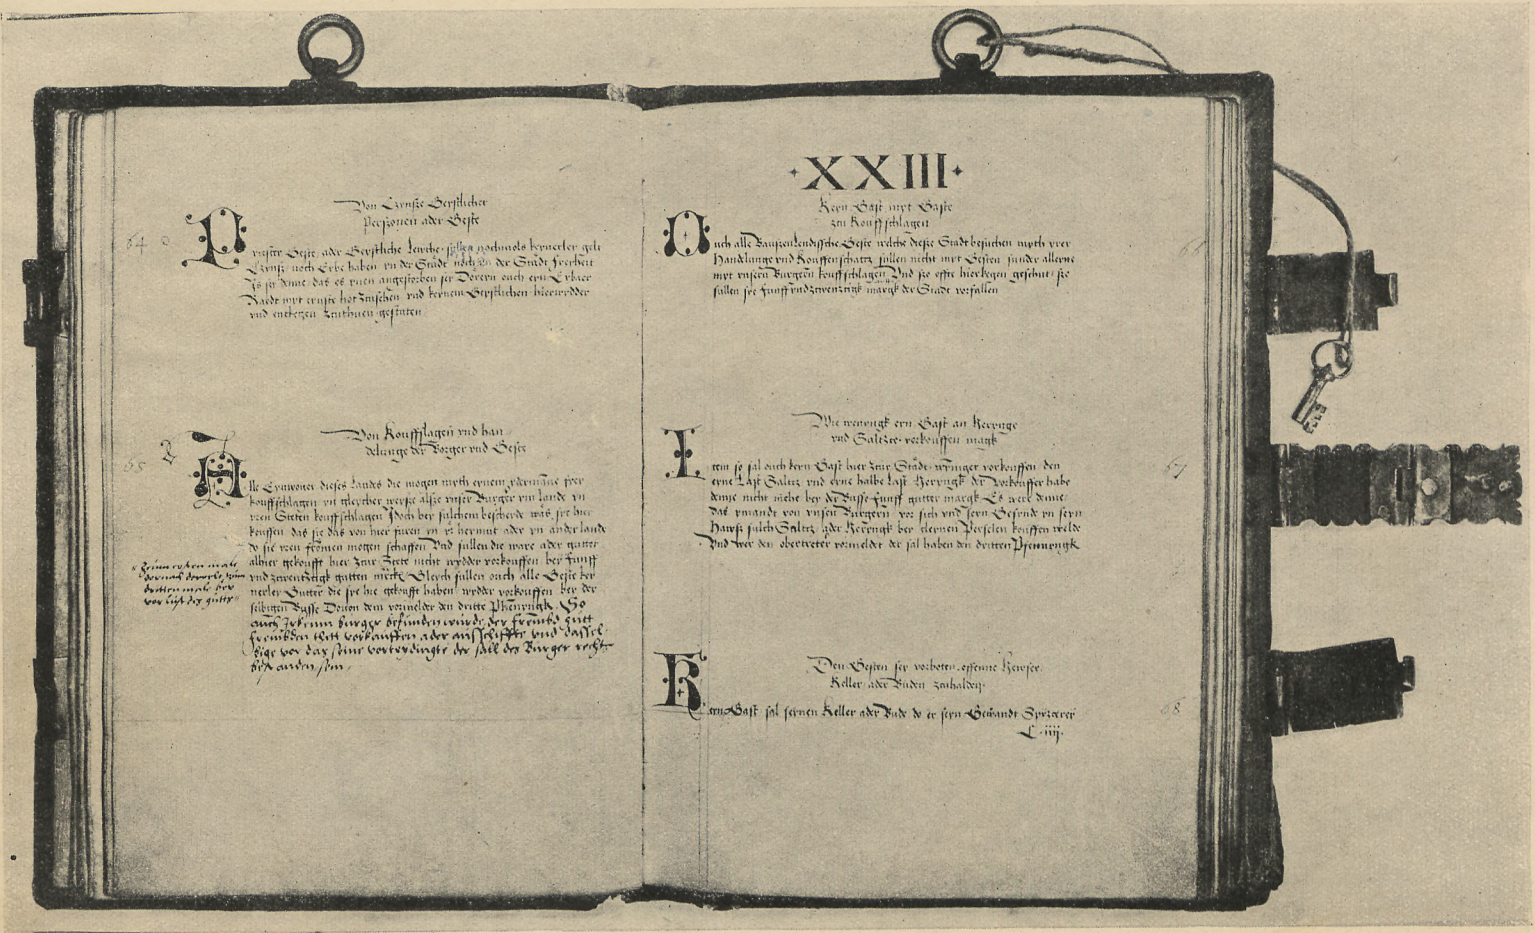 64
Von Czynsze Geystlicher
Perszonen ader Geste
Priester Geste ader Geystliche Lewthe sullen nochmols keynerley gelt
Czynsz noch Erbe haben yn der Stadt noch yn der Stadt freyheit
Is sey denne das es ynen angestorben sey Dovern ouch eyn Erbaer
Raedt myt ernste hot zcusehen vnd keynem Geystlichen hierwydder
vnd entkegen zcuthuen gestaten
65
Von Kouffslagen vnd han
delunge der Borger vnd Geste
Alle Eynwoner dieses Landes die mogen myth eynem ydermanne frey
kouffschlagen yn gleycher weysze alsze vnser Burger ym lande yn
vren Steten kouffschlagen Idoch bey sulchem bescheyde was sye hie
kouffen das sie das von hier furen yn yr heymut ader yn ander lande
do sie vren fromen mogen schaffen Vnd sullen die ware ader gutter
alhier gekoufft hier zcur Stete nicht wydder vorkouffen bey funff
vnd zcwentzigk gutten marck Gleych sullen ouch alle Geste key
nerley Gutter die sye hie gekoufft haben wydder vorkouffen bey der
selbigen Busse Douon dem vormelder den dritte Phennyngk So
auch Jrkeinn burger befunden wurde der frembd gutt
frembden thett vorkauffen ader ausschiffte vnd dassel
bige vor das seine vorteydingte der sall des Burger rechts
bestanden sein
Zcum ersten male
dornach
dritten male bey
vorlust des gutts
XXIII
Keyn Gast myt Gaste
zu Kouffschlagen
Ouch alle Bauszenlendissche Geste welche diesze Stadt besuchen myth yrer
Handlunge vnd Kouffenschatz sullen nicht myt Gesten sunder alleyne
myt vnsern Burgern kouffschlagen Vnd szo offte hierkegen geschut szo
sullen sye funffvndzcwenzcigk margk der Stadt vorfallen
Wie wenyngk eyn Gast an Herynge
vnd Saltze vorkouffen magk
67
Item so sal ouch keyn Gast hier zcur Stadt wenyger vorkouffen den
eyne Last Saltz vnd eyne halbe Last Heryngk der vorkouffer habe
denne nicht mehe bey der Busse funff gutter margk Es were denne
das ymandt von vnsen Burgern vor sich vnd seyn Gesynde yn seyn
Hawsz sulch Saltz ader Heryngk bey cleynen Perselen kouffen welde
Vnd wer den obertreter vormeldet der sal haben den dritten Pfennyngk
Den Gesten sey vorboten offenne Hewser
Keller ader Buden zcuhalden
68
Keyn Gast sal seynen Keller ader Bude do er seyn Gewandt Speczerey
L iiij